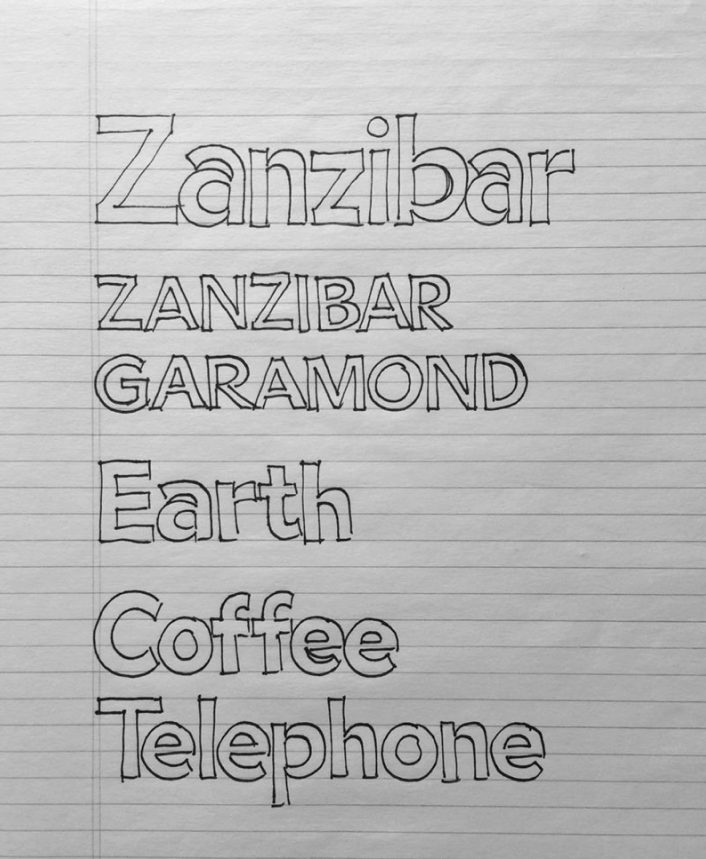 Zanzibar
ZANZIBAR
GARAMOND
Earth
Coffee
Telephone